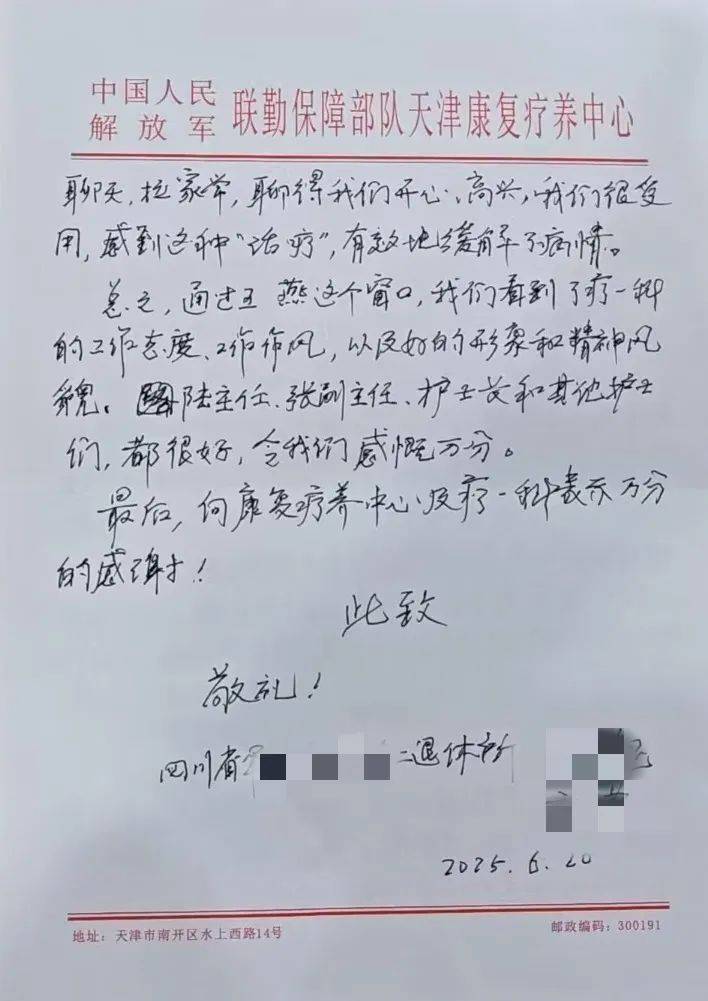 中国人民
解放军
联勤保障部队天津康复疗养中心
聊天,拉家常,聊得我们开心、高兴,我们很受
用,感到这种“话疗”,有效地缓解了病情。
总之,通过王燕这个窗口,我们看到了疗一科
的工作态度、工作作风,以及好的形象和精神风
貌。陆主任、张副主任、护士长和其他护士
们,都很好,令我们感慨万分。
最后,向康复疗养中心及疗一科表示万分
的感谢!
此致
敬礼!
四川省 二退休所
2025.6.20
地址:天津市南开区水上西路14号
邮政编码:300191